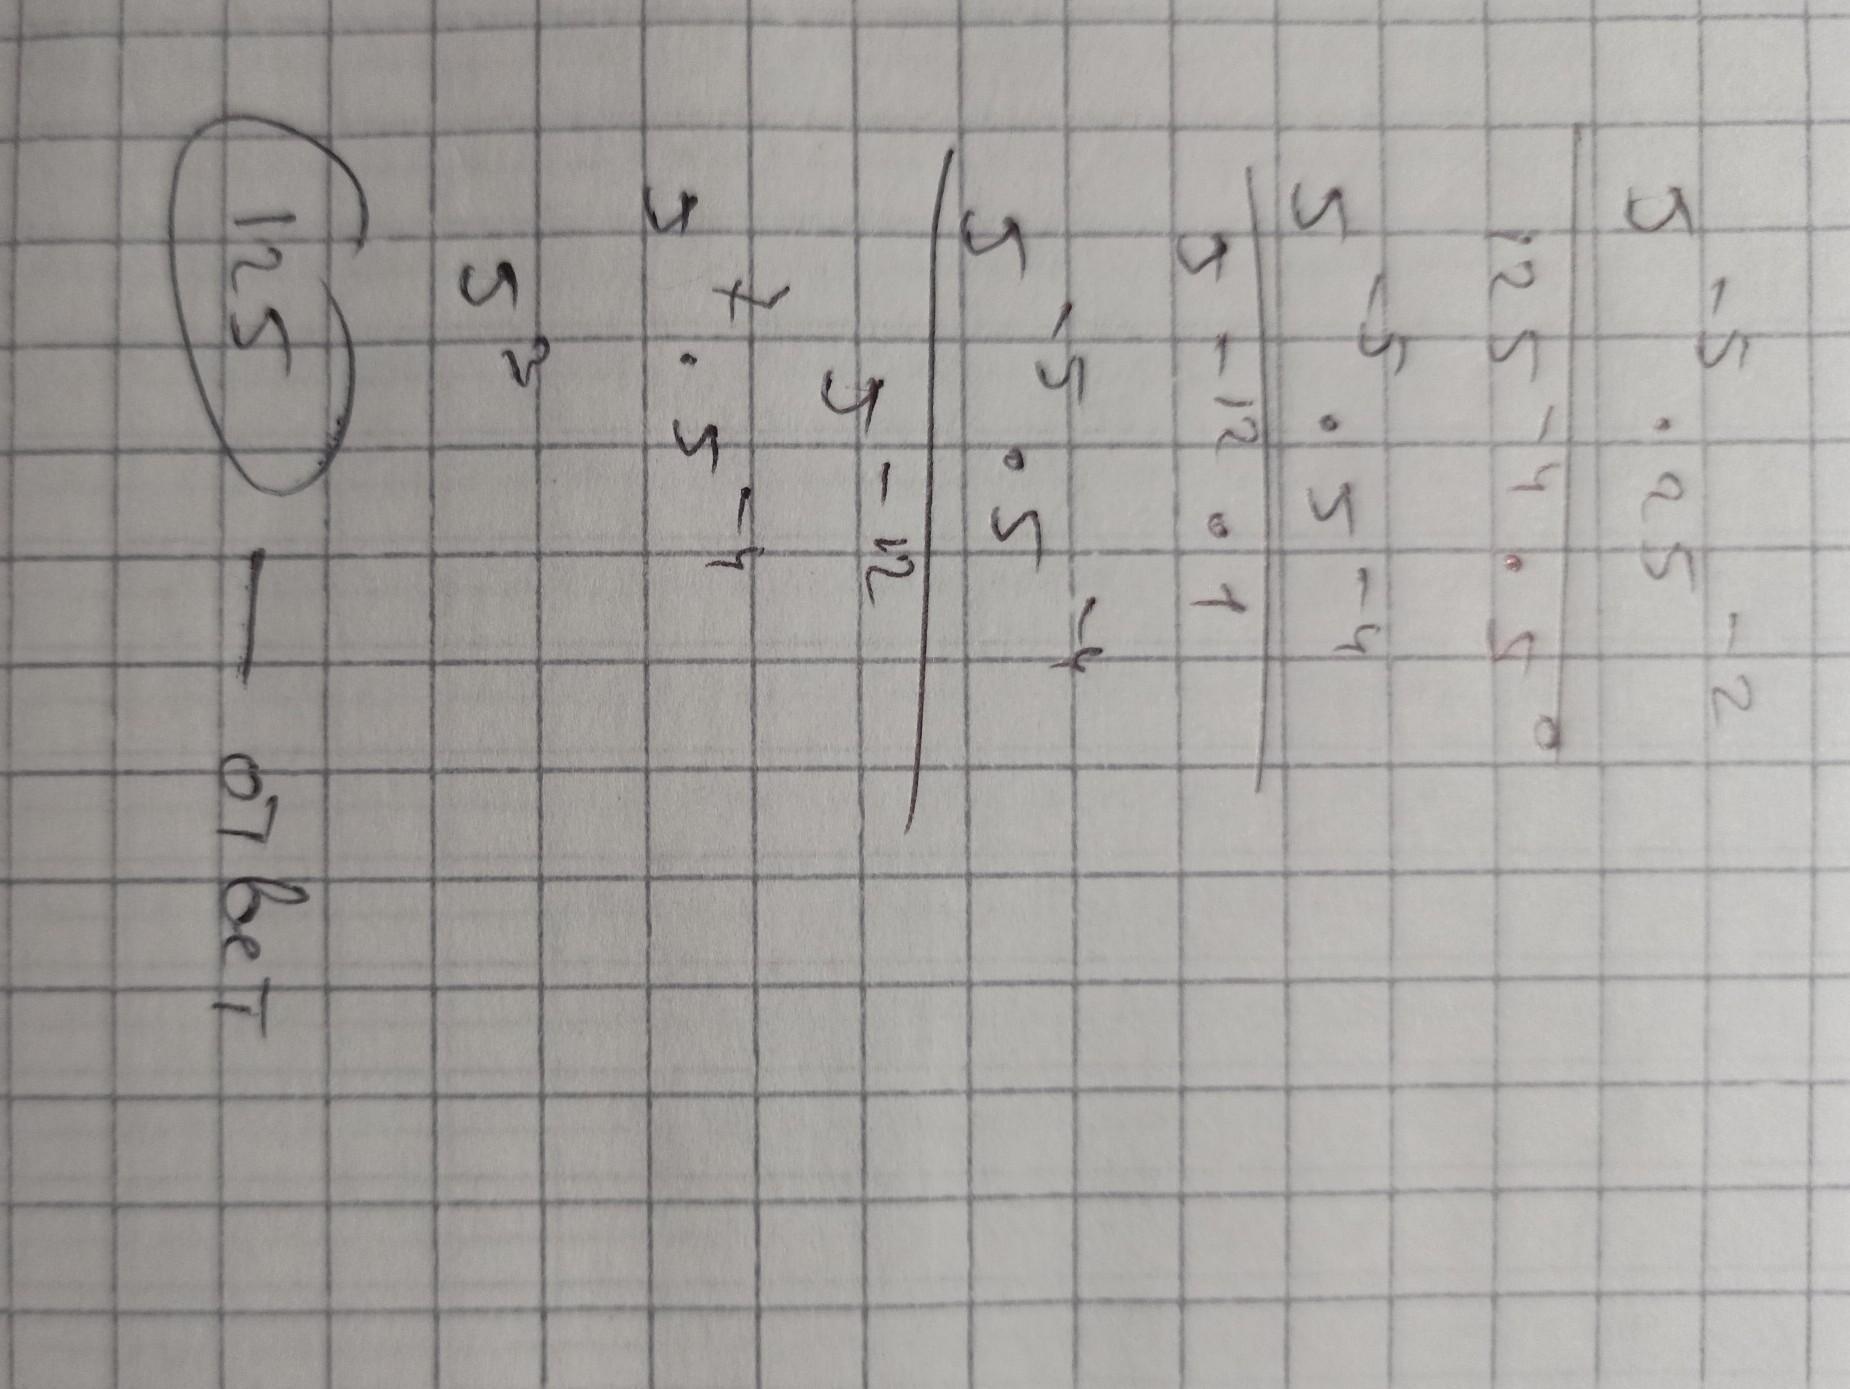 5⁻⁵ · 25⁻²
125⁻⁴ · 5⁰
5⁻⁵ · 5⁻⁴
5⁻¹² · 1
5⁻⁵ · 5⁻⁴
5⁻¹²
5⁷ · 5⁻⁴
5³
125 — ответ